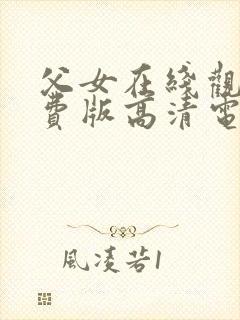 父女在綫觀
費版高清電
風凌若1